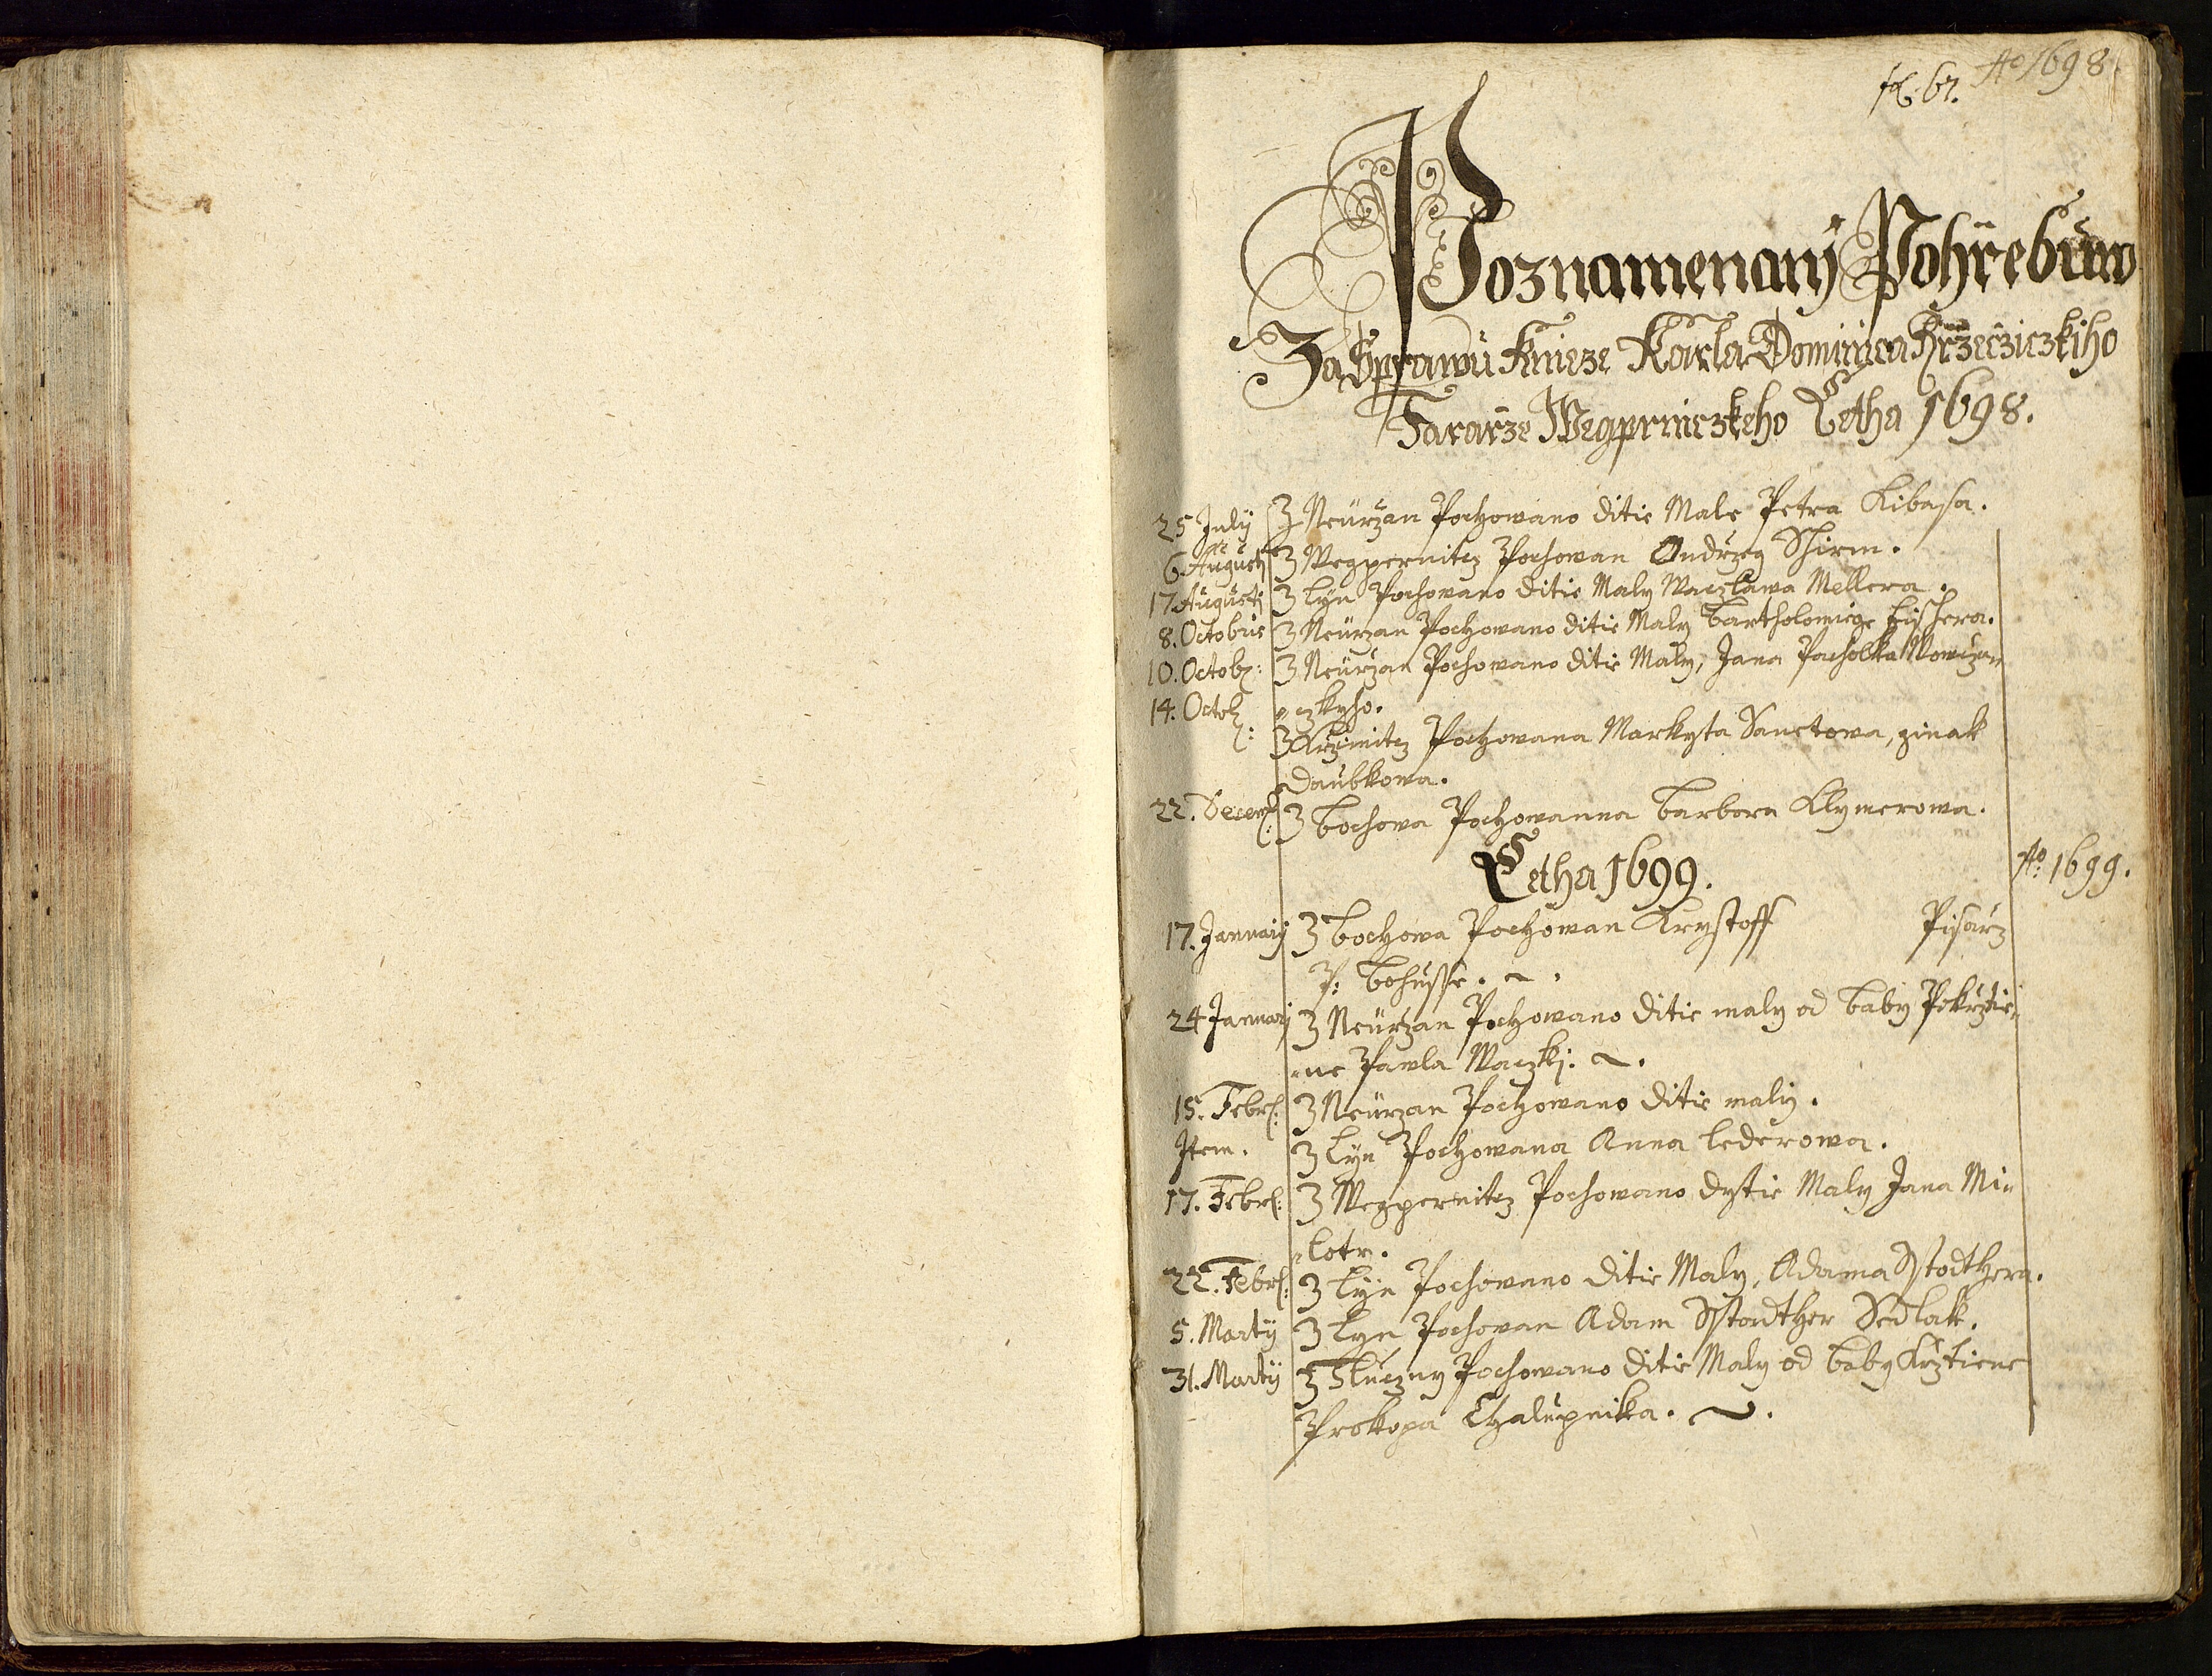 fol. 67. Ao 1698.
Poznamenanj Pohržebuw
Za Sprawu Knieze Karla Dominica Hržecžiczkiho
Fararže Wegprniczkeho Letha 1698.
25 Julij Z Neürzan Pochowano ditie Male Petra Kibasa.
6 Augusti Z Wegpernitcz Pochowan Ondrzeg Schirm.
17 Augusti Z Lyn Pochowano ditie Maly Waczlawa Mellera.
8. Octobris Z Neürzan Pochowano ditie Maly Bartholomiege Fischera.
10. Octob: Z Neürzan Pochowano ditie Maly, Jana Pacholka
14. Octob: „czkyho.
Z Krzimitcz Pochowana Markyta Sanctowa, ginak
Daubkowa.
22. Decemb: Z Bochowa Pochowanna Barbora Klymerowa.
Letha 1699. Ao 1699.
17. Januarij Z Bochowa Pochowan Krystoff Pisarz
P: Bohusse.
24 Januarij Z Neürzan Pochowano ditie maly od baby Pokrztie„
„ne Pawla Waczkj.
15. Febr: Z Neürzan Pochowano ditie maly.
Item. Z Lyn Pochowana Anna Lederowa.
17. Febr: Z Wegpernitcz Pochowano dytie Maly Jana Mi„
„lotr.
22. Febr: Z Lyn Pochowano ditie Maly, Adama Sstodthera.
5. Martij Z Lyn Pochowan Adam Sstodther Sedlak.
31. Martij Z Tluczny Pochowano ditie Maly od baby Krztiene
Prokopa Chalupnika.